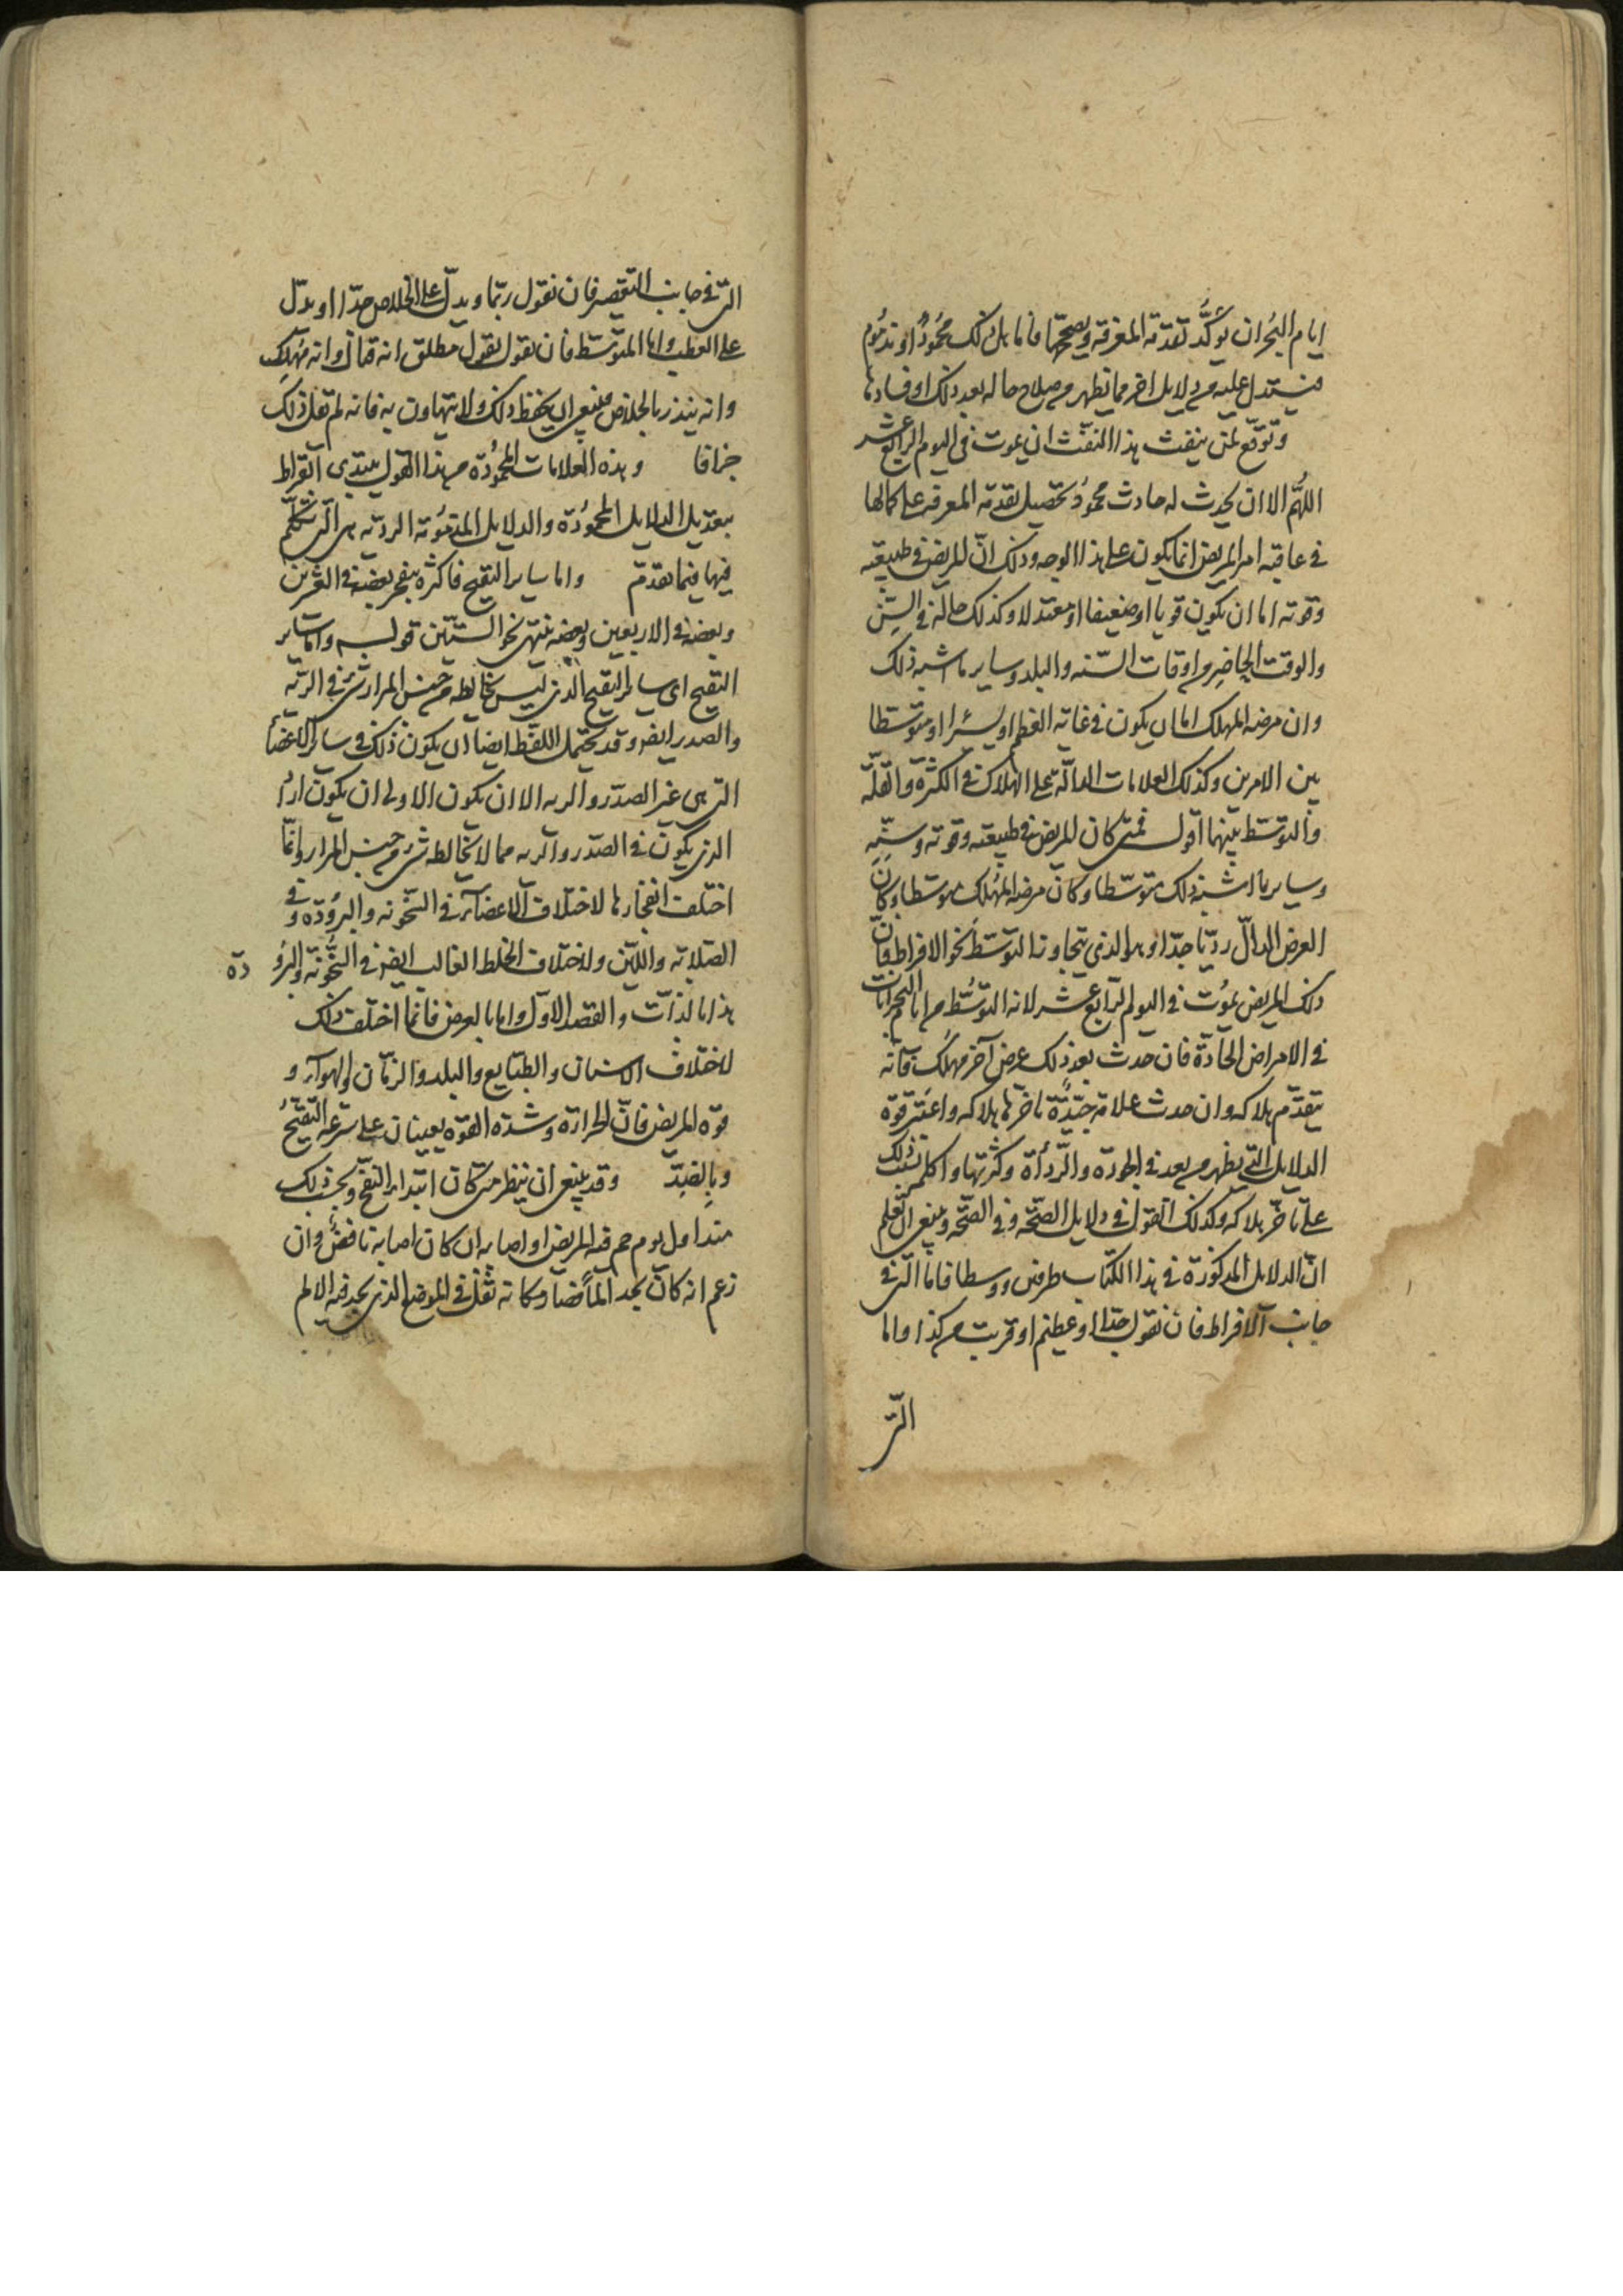 ايام البحران يؤكد تقدمة المعرفة ويصححها فاما هل ذلك محمود او مذموم
فيستدل عليه من دلايل اخر مما تظهر من صلاح حاله بعد ذلك او فسادها
وتوقع لمن ينفث هذا النفث ان يموت فى اليوم الرابع عشر
اللهم الا ان يحدث له حادث محمود تحصيل تقدمة المعرفة على كمالها
فى عاقبة امر المريض انما يكون على هذا الوجه وذلك ان المريض فى طبيعته
وقوته اما ان يكون قويا او ضعيفا او معتدلا وكذلك حاله فى السن
والوقت الحاضر من اوقات السنه والبلد وساير ما اشبه ذلك
وان مرضه المهلك اما ان يكون فى غاية العظم او يسيرا او متوسطا
بين الامرين وكذلك العلامات الدالة على الهلاك فى الكثرة والقلة
والتوسط بينهما اقول فمتى كان المريض فى طبيعته وقوته وسنه
وساير ما اشبه ذلك متوسطا وكان مرضه المهلك متوسطا وكان
العرض الدال رديا جدا وهو الذى يتجاوز التوسط نحو الافراط فان
ذلك المريض يموت فى اليوم الرابع عشر لانه التوسط من ايام البحرانات
فى الامراض الحادة فان حدث بعد ذلك عرض آخر مهلك فانه
يتقدم هلاكه وان حدث علامة جيدة تاخر لها هلاكه واعتبر قوة
الدلايل التى يظهر من بعد فى الجودة والرداءة وكثرتها واحكم بذلك
على تاخر هلاكه وكذلك القول فى دلايل الصحة وفى الصحة وينبغى ان تعلم
ان الدلايل المذكورة فى هذا الكتاب طرفين ووسطا فاما التى فى
جانب الافراط فان نقول جدا او عظيم او قريب من كذا واما
التى
التى فى جانب التقصير فان نقول ربما ويدل على الخلاص جدا او يدل
على العطب واما المتوسط فان نقول بقول مطلق انه قتال وانه مهلك
وانه ينذر بالخلاص فينبغى ان يحفظ ذلك ولا يتهاون به فانه لم تقل ذلك
جزافا وهذه العلامات المحمودة من هذا القول يبتدى ابقراط
بتعديل الدلايل المحمودة والدلايل المذمومة الردية هى التى تكلم
فيها فيما تقدم واما ساير التقيح فاكثره ينفجر بعضه فى العشرين
وبعضه فى الاربعين وبعضه ينتهى نحو الستين قوله واما ساير
التقيح اى ساير التقيح الذى ليس يخالطه من جنس المرار شئ فى الرية
والصدر ايضا وقد يحتمل اللفظ ايضا ان يكون ذلك فى ساير الاعضاء
التى هى غير الصدر والريه الا ان يكون الاولى ان يكون اراد
الذى يكون فى الصدر والريه مما لا يخالطه شئ من جنس المرار وانما
اختلف انفجارها لاختلاف الاعضاء فى السخونه والبرودة وفى
الصلابه واللين ولاختلاف الخلط الغالب ايضا فى السخونة والبرو دة
هذا بالذات والقصد الاول واما بالعرض فانما اختلف ذلك
لاختلاف الاسنان والطبايع والبلد والزمان والهواء و
قوة المريض فان الحرارة وشدة القوة يعينان على سرعة التقيح
وبالضد وقد ينبغى ان ينظر متى كان ابتداء التقيح ويحسب ذلك
منذ اول يوم حم فيه المريض او اصابه ان كان اصابه نافض وان
زعم انه كان يجد الما فضا وكانه ثقل فى الموضع الذى يجد فيه الالم